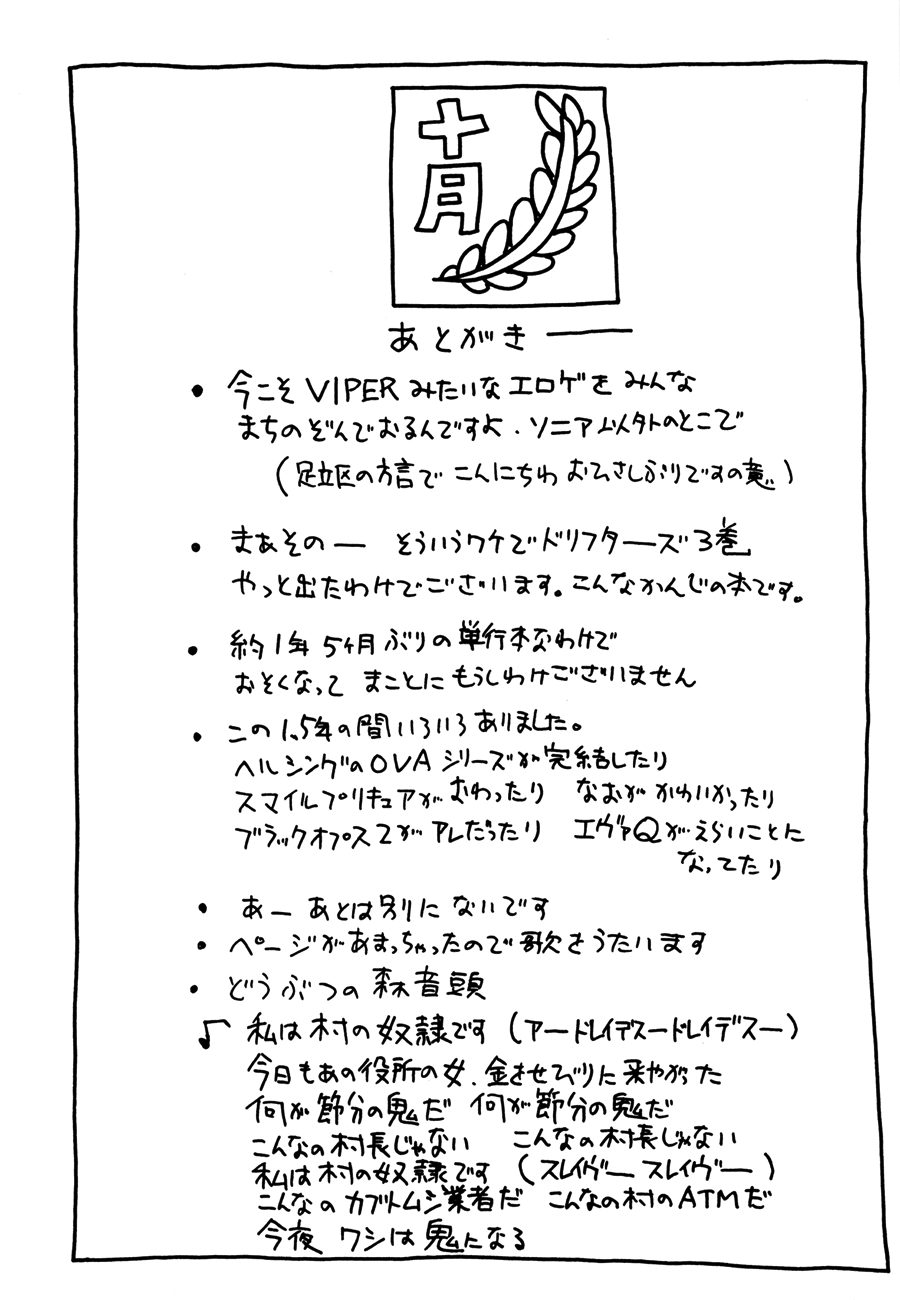 十月
あとがき──
・今こそVIPERみたいなエロゲをみんな
まちのぞんでおるんですよ．ソニア以外のとこで
（足立区の方言でこんにちわ おひさしぶりですの意）
・まあそのー そういうワケでドリフターズ3巻
やっと出たわけでございます。こんなかんじの本です。
・約1年5ヶ月ぶりの単行本なわけで
おそくなって まことにもうしわけございません
・この1.5年の間いろいろありました。
ヘルシングのOVAシリーズが完結したり
スマイルプリキュアがおわったり なおがかわいかったり
ブラックオプス2がアレだったり エヴァQがえらいことに
なってたり
・あー あとは別にないです
・ページがあまっちゃったので歌をうたいます
・どうぶつの森音頭
♪ 私は村の奴隷です（アードレイデスードレイデスー）
今日もあの役所の女．金をせびりに来やがった
何が節分の鬼だ 何が節分の鬼だ
こんなの村長じゃない こんなの村長じゃない
私は村の奴隷です（スレイヴー スレイヴー）
こんなのカブトムシ業者だ こんなの村のATMだ
今夜 ワシは鬼になる